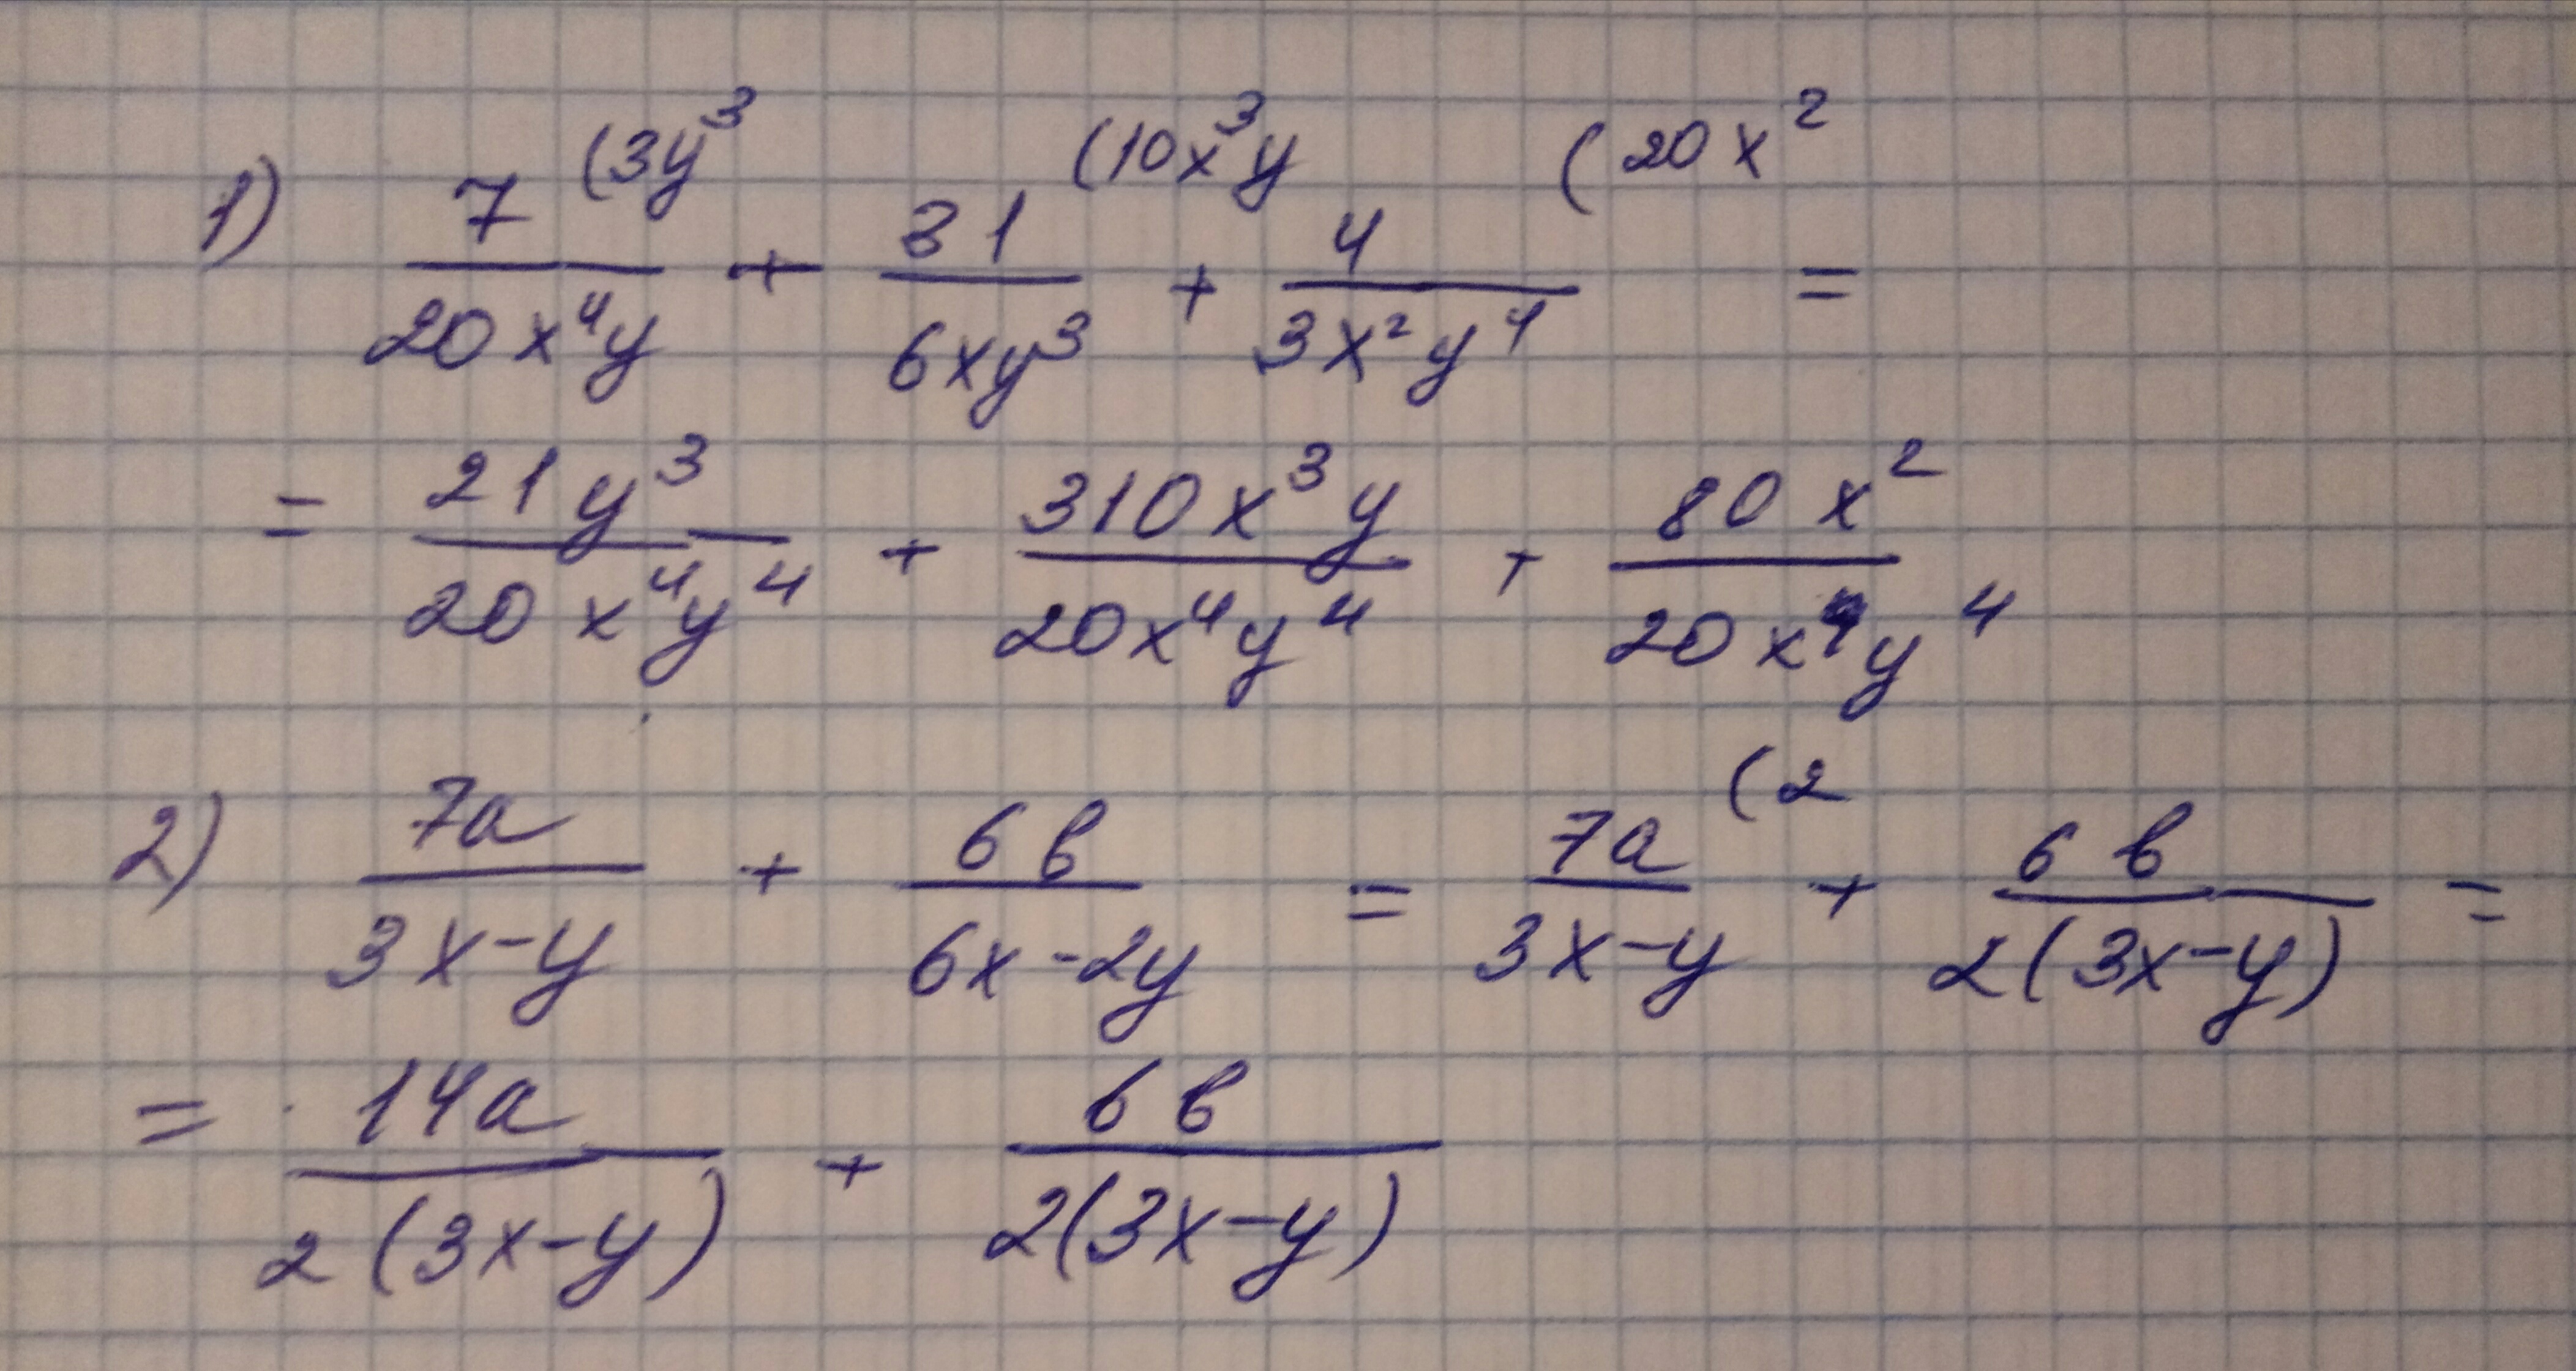 1) 7/(20x⁴y) (3y³ + 31/(6xy³) (10x³y + 4/(3x²y⁴) (20x² =
= 21y³/(20x⁴y⁴) + 310x³y/(20x⁴y⁴) + 80x²/(20x⁴y⁴)
2) 7a/(3x-y) + 6b/(6x-2y) = 7a/(3x-y) (2 + 6b/(2(3x-y)) =
= 14a/(2(3x-y)) + 6b/(2(3x-y))